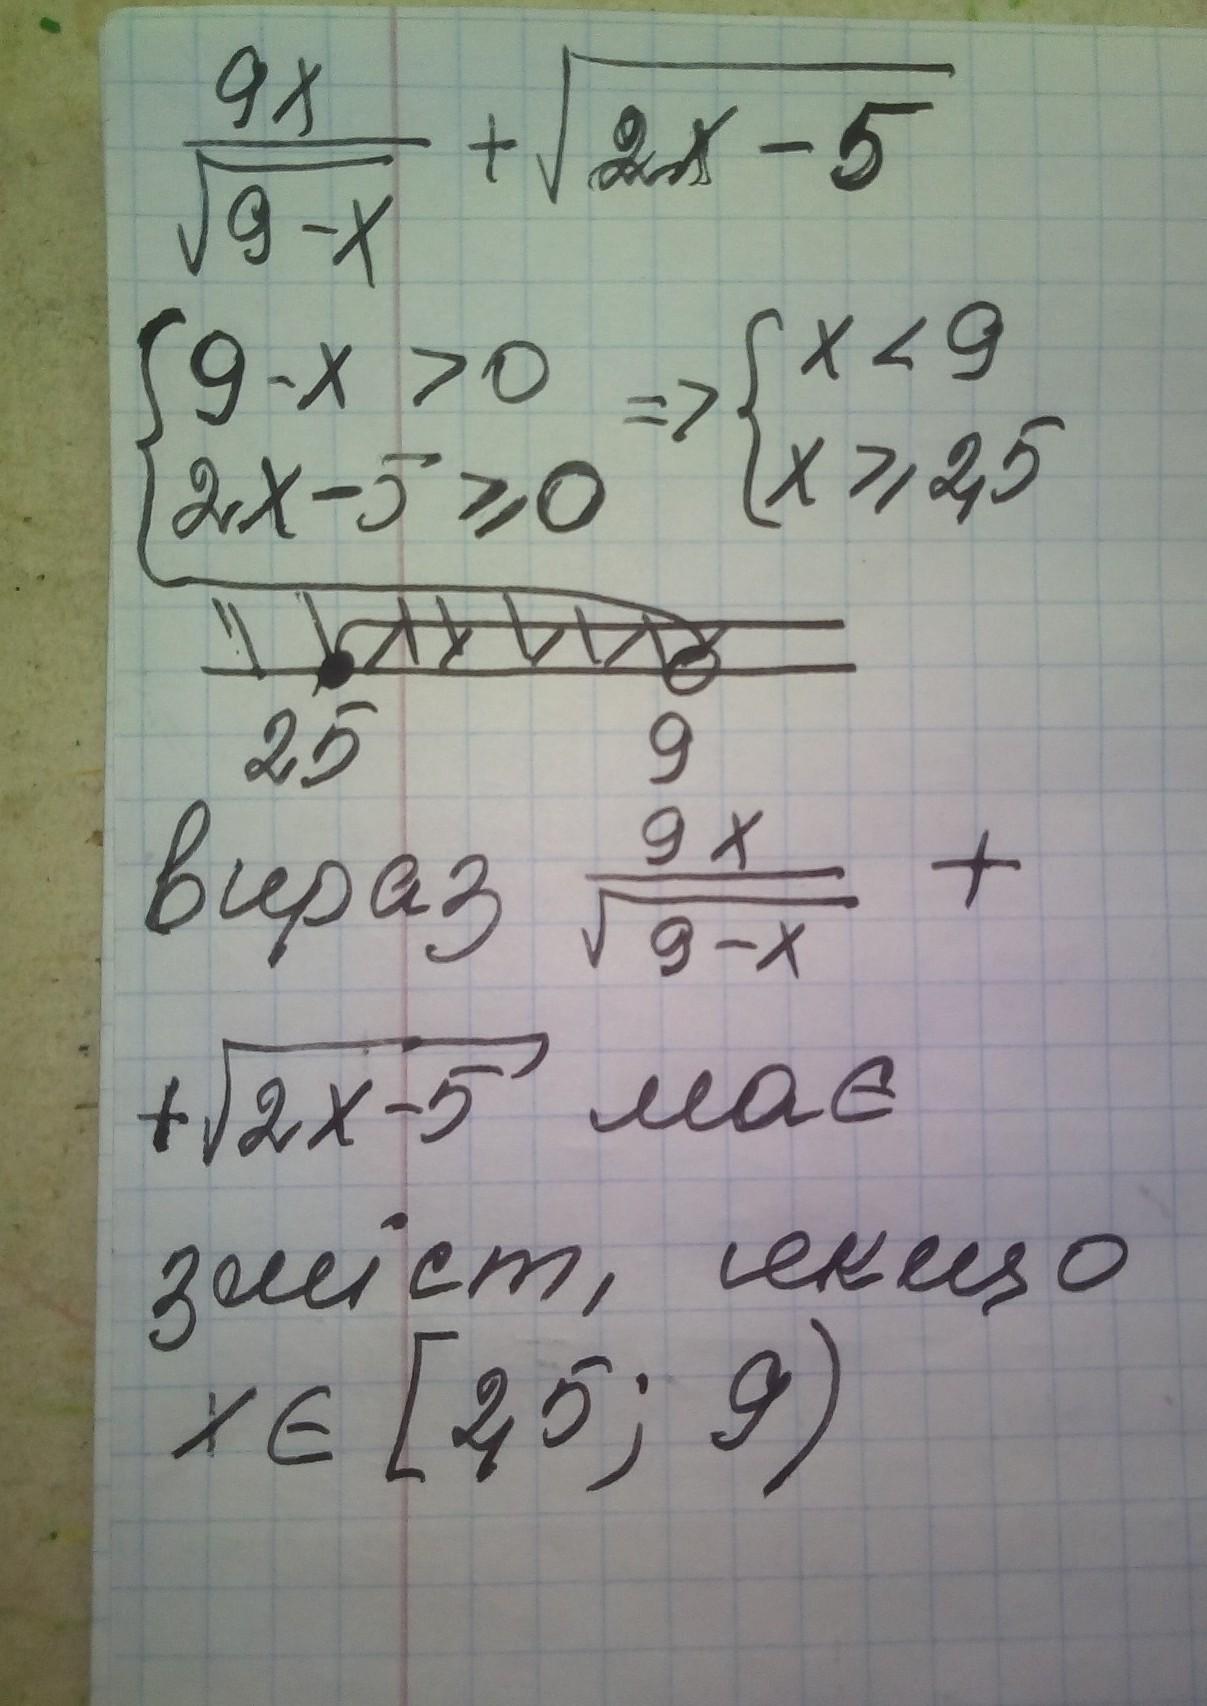 9x/√(9-x) + √(2x-5)
{9-x>0 => {x<9
{2x-5⩾0 {x⩾2,5
25 9
вираз 9x/√(9-x) +
+√(2x-5) має
зміст, якщо
x∈[2,5; 9)